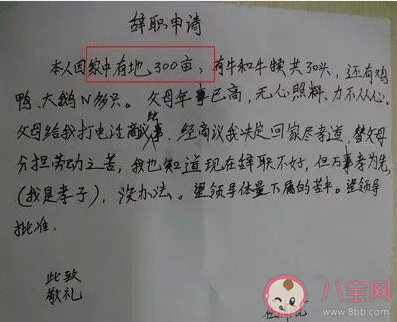 辞职申请
本人因家中有地300亩，有牛和牛犊共30头，还有鸡
鸭、大鹅N多只。父母年事已高，无心照料，力不从心。
父母给我打电话商议此事，经商议我决定回家尽孝道，替父母
分担劳动之苦，我也知道现在辞职不好，但百事孝为先
(我是孝子)，没办法。望领导体量下属的苦中。望领导
批准.
此致
敬礼
八宝网
www.8bb.com